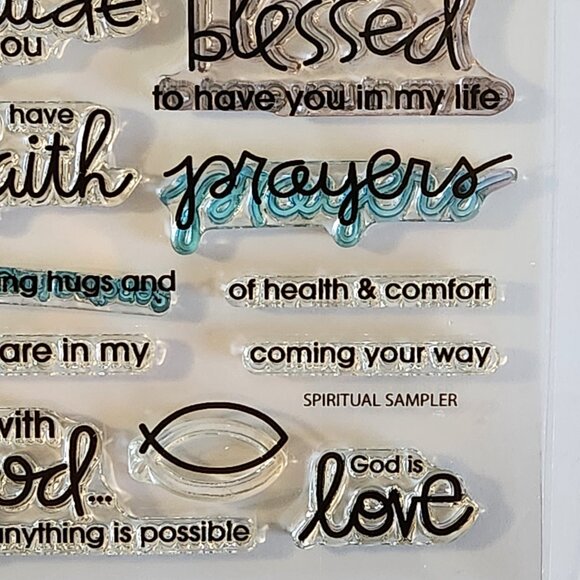 blessed
you
to have you in my life
have
prayers
hugs and
of health & comfort
are in my
coming your way
SPIRITUAL SAMPLER
with
God is
love
anything is possible